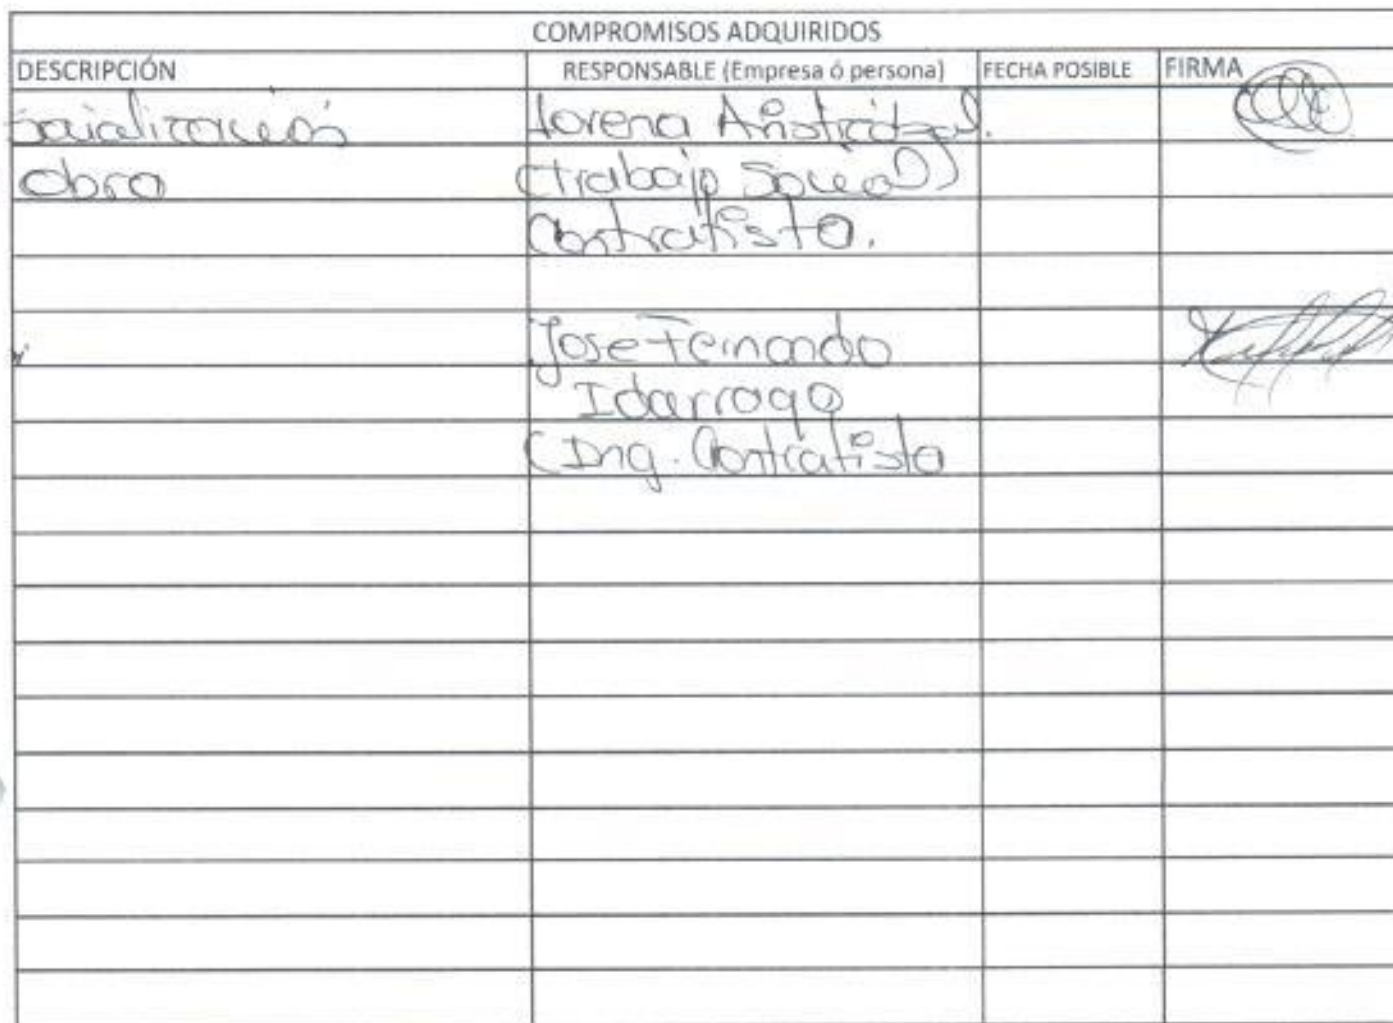 COMPROMISOS ADQUIRIDOS
DESCRIPCIÓN RESPONSABLE (Empresa ó persona) FECHA POSIBLE FIRMA
Socialización Lorena Aristizabal.
Obra (trabajo Social)
Contratista.
Jose Fernando
Idarraga
(Ing. Contratista